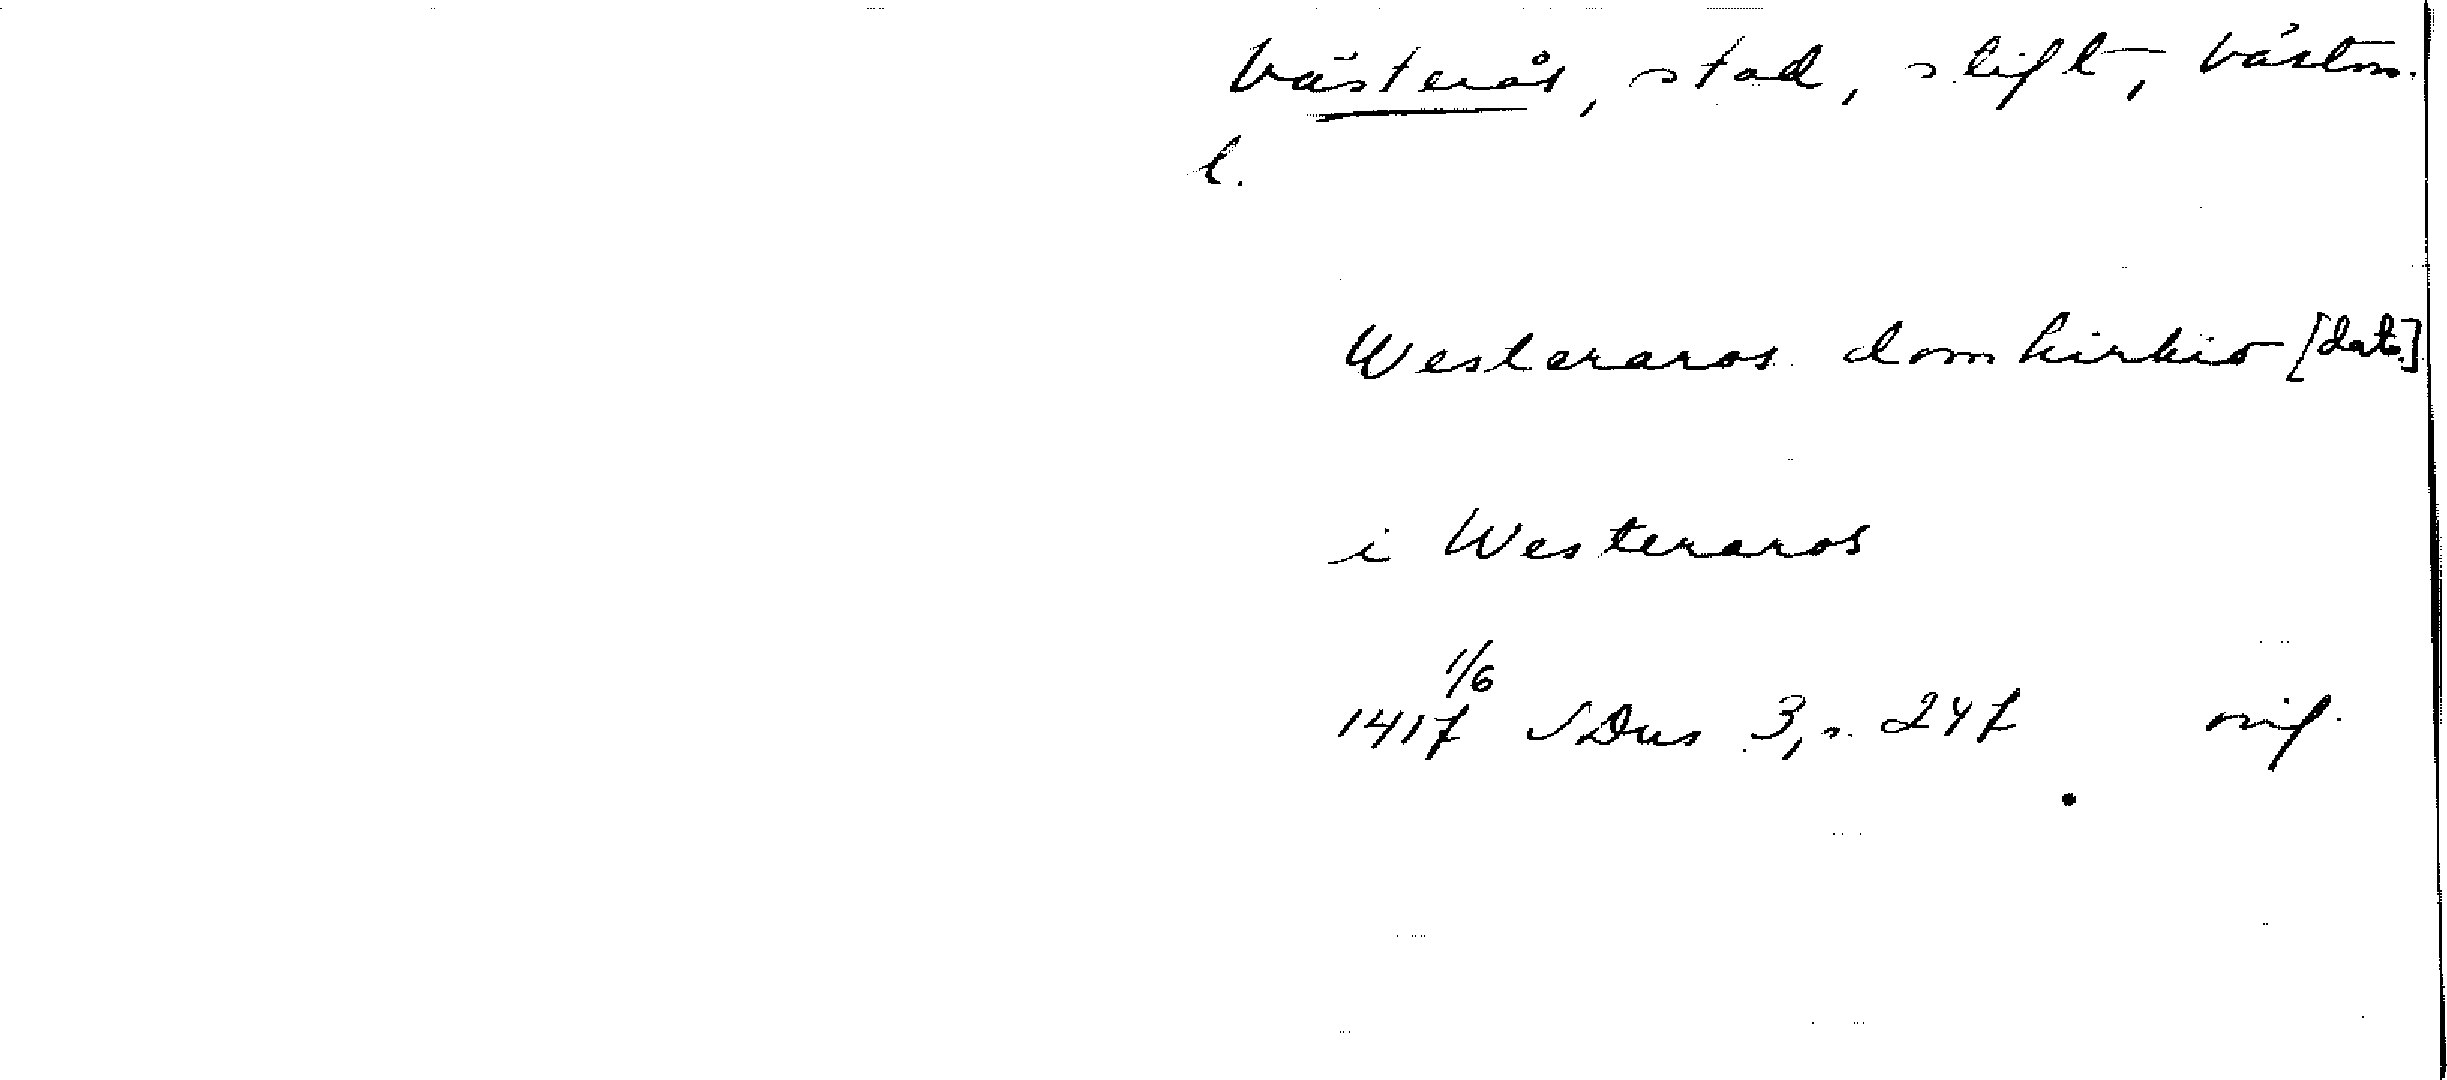 Västerås, stad, stift, Västm.
l.
Westeraros domkirkio [dat.]
i Westeraros
1/6
1417 SDns 3, s. 247 orig.